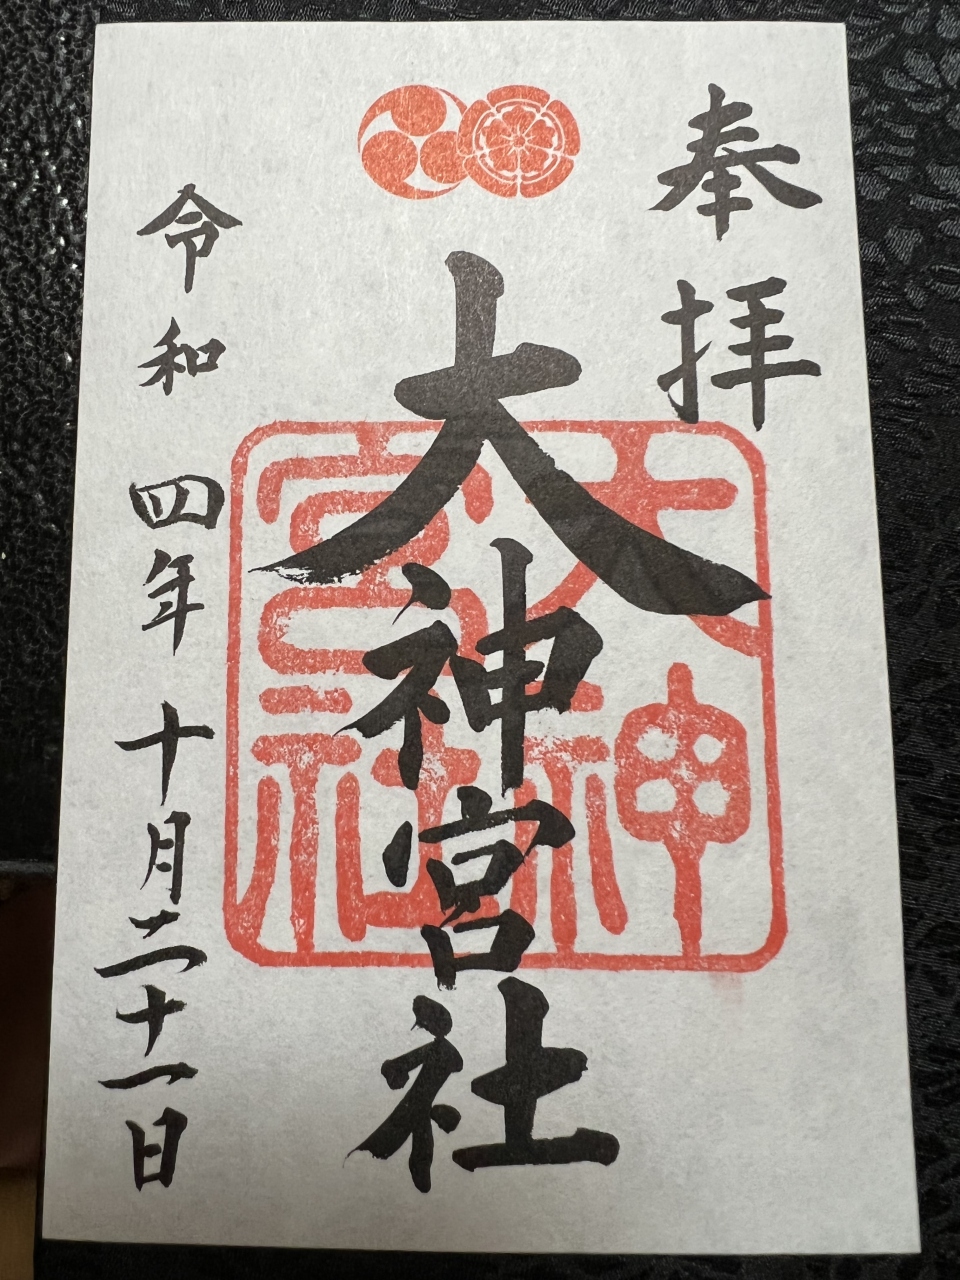 奉拝
大神宮社
大神宮社
令和四年十月二十一日